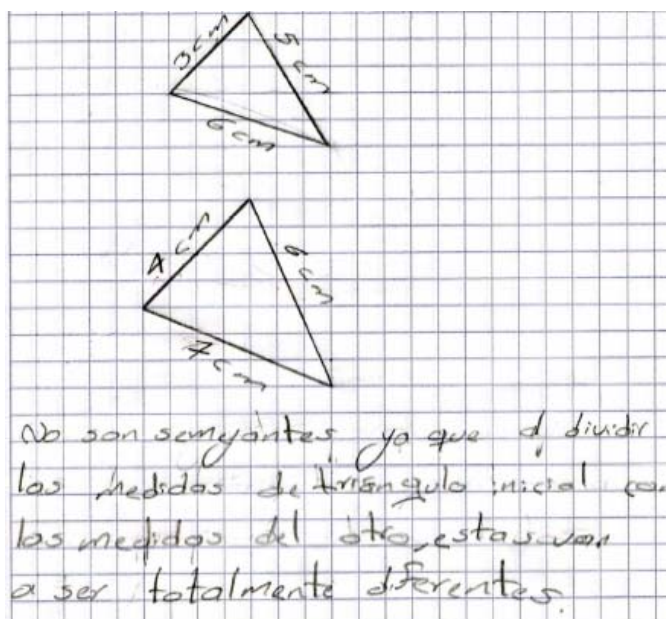 3cm
5cm
6cm
4cm
6cm
7cm
No son semejantes, ya que al dividir
las medidas de triángulo inicial con
las medidas del otro, estas van
a ser totalmente diferentes.